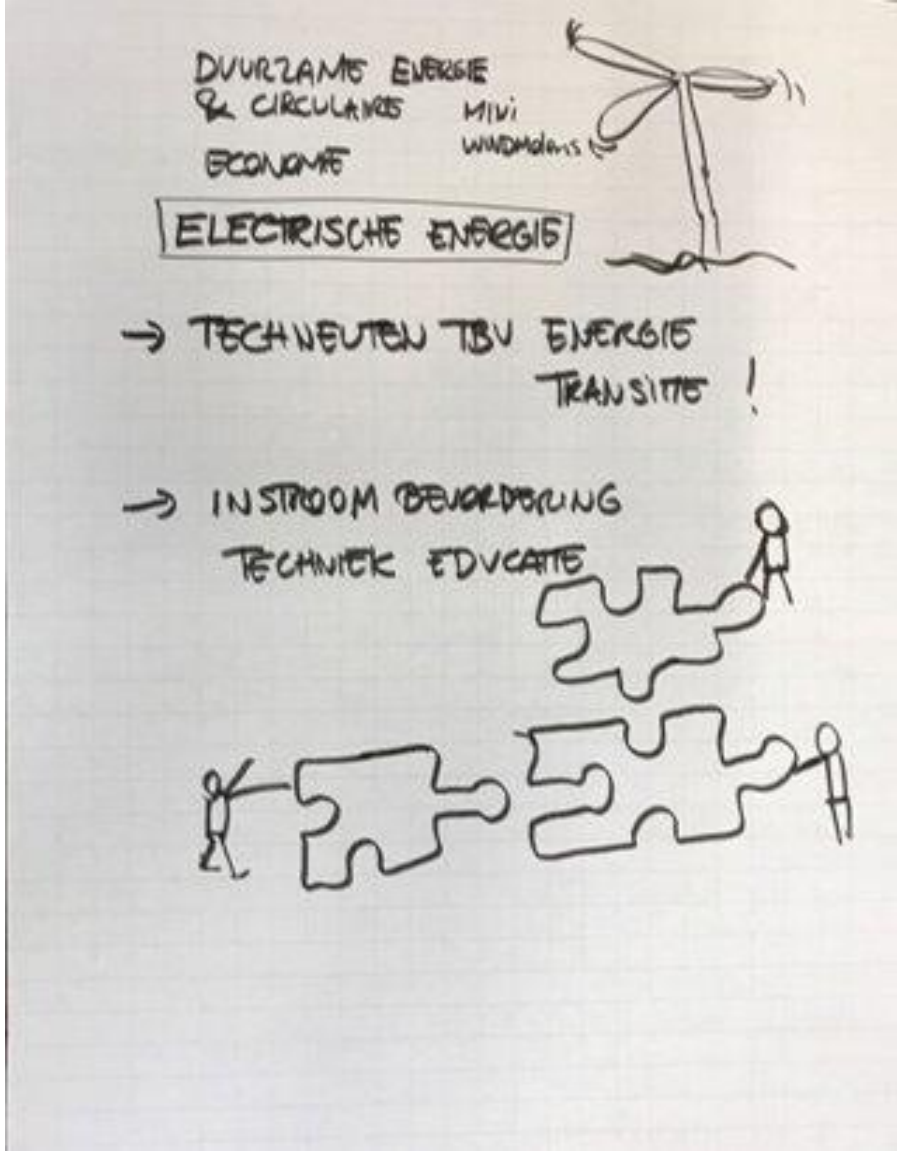 DUURZAME ENERGIE
& CIRCULAIRE
ECONOMIE
MiNi
WINDMolens
ELECTRISCHE ENERGIE
→ TECHNEUTEN TBV ENERGIE
TRANSITIE !
→ INSTROOM BEVORDERING
TECHNIEK EDUCATIE